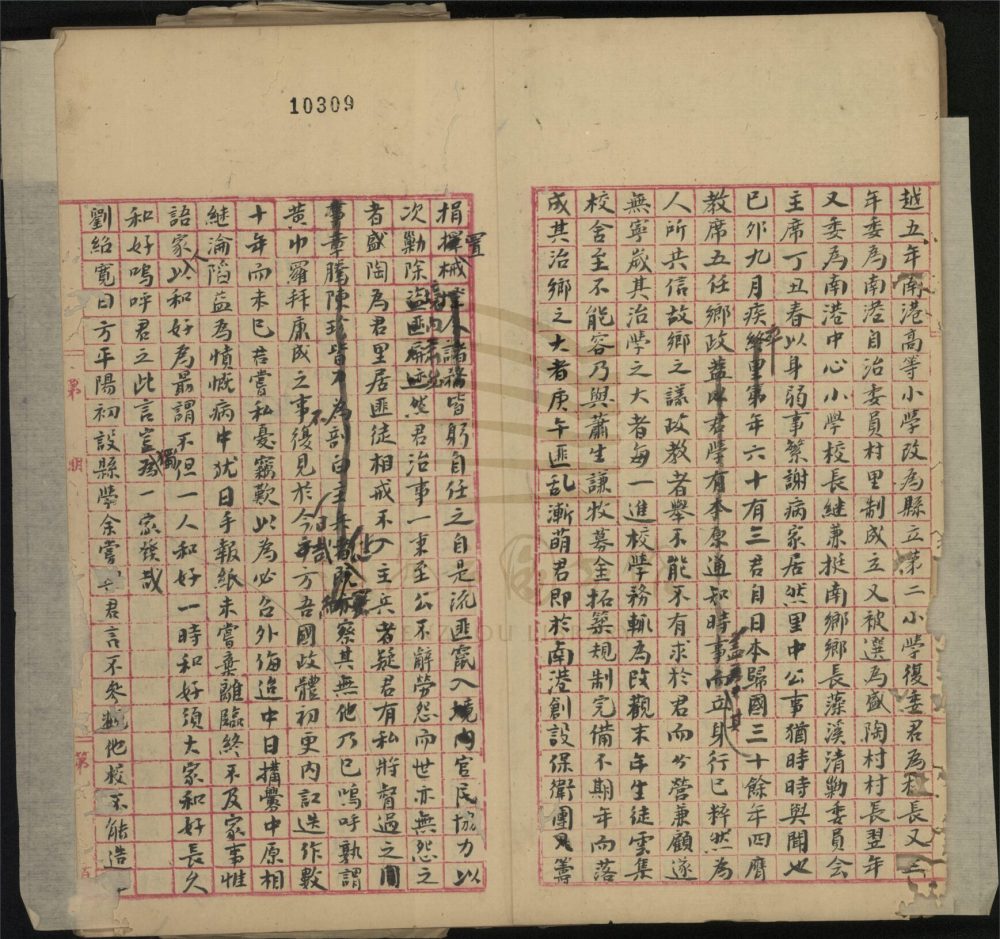 越五年南港高等小學改為縣立第二小學復委君為校長又三
年委為南港自治委員村里制成立又被選為盛陶村村長翌年
又委為南港中心小學校長繼兼挺南鄉鄉長藻溪清勦委員會
主席丁丑春以身弱事繁謝病家居然里中公事猶時時與聞也
已卯九月疾終里第年六十有三君自日本歸國三十餘年四膺
教席五任鄉政蓋君學有本原通知時事而立身行已粹然為
人所共信故鄉之議政教者舉不能不有求於君而兮營兼顧遂
無寧歲其治學之大者每一進校學務輒為改觀末年生徒雲集
校舍至不能容乃與蕭生謙牧募金拓築規制完備不期年而落
成其治鄉之大者庚午匪乱漸萌君即於南港創設保衛團凡籌
捐置械諸務皆躬自任之自是流匪竄入境內官民協力以
次勦除盜匪屏迹然君治事一秉至公不辭勞怨而世亦無怨之
者盛陶為君里居匪徒相戒不入主兵者疑君有私將督過之同
章騰陳珍皆力為剖白主兵者察其無他乃已嗚呼孰謂
黃巾羅拜康成之事不復見於今乎方吾國政體初更內訌迭作數
十年而未已君嘗私憂竊歎以為必召外侮迨中日搆釁中原相
繼淪陷益為憤慨病中犹日手報紙未嘗棄離臨終不及家事惟
語家人以和好為最謂不但一人和好一時和好須大家和好長久
和好嗚呼君之此言豈獨為一家發哉
劉紹寬曰方平陽初設縣學余嘗與君言不參觀他校不能造
10309